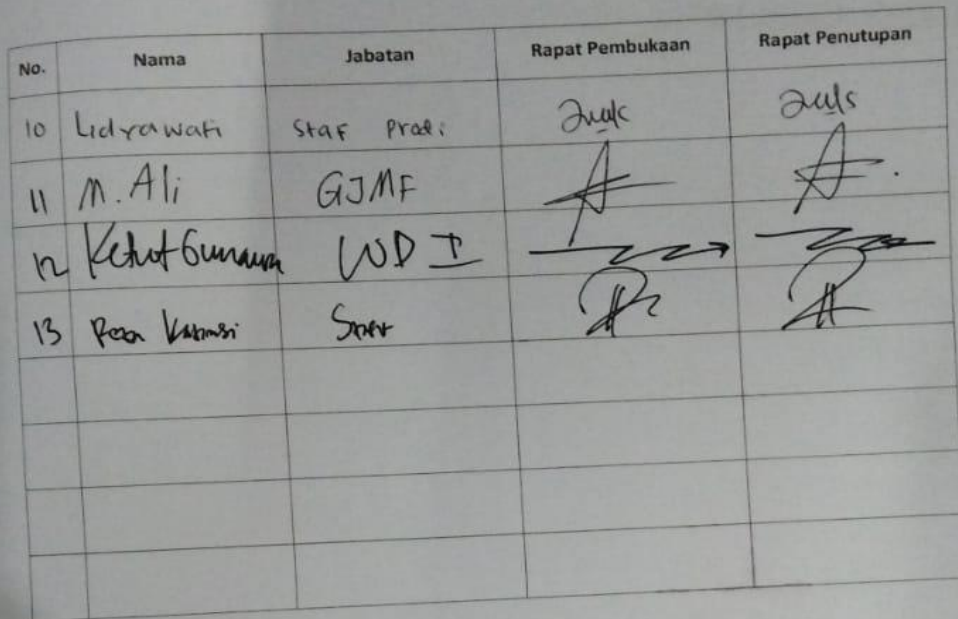 No. Nama Jabatan Rapat Pembukaan Rapat Penutupan
10 Lidyawati Staf Prodi
11 M. Ali GJMF
12 Ketut Gunawan WD I
13 Staf